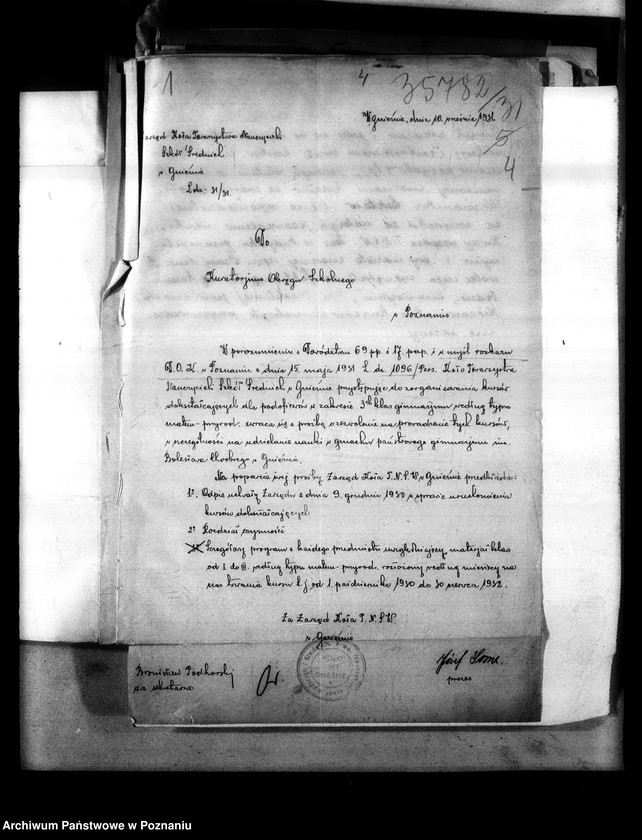 1
4
35782/31
5
4
W Gnieźnie, dnia 10. września 1931.
Zarząd Koła Towarzystwa Nauczycieli
Szkół Średnich
w Gnieźnie
L.dz. 31/31.
Do
Kuratorjum Okręgu Szkolnego
w Poznaniu
W porozumieniu z Dowództwem 69 pp. i 17. pap. i w myśl rozkazu
D.O.K. w Poznaniu z dnia 15. maja 1931 L. dz. 1096/Pers. Koło Towarzystwa
Nauczycieli Szkół Średnich w Gnieźnie przystępując do zorganizowania kursów
dokształcających dla podoficerów w zakresie 3ech klas gimnazjum według typu
matem.-przyrod. zwraca się z prośbą o zezwolenie na prowadzenie tych kursów,
w szczególności na udzielanie nauki w gmachu państwowego gimnazjum im.
Bolesława Chrobrego w Gnieźnie.
Na poparcie swej prośby Zarząd Koła T.N.S.W. w Gnieźnie przedkłada:
1o. Odpis uchwały Zarządu z dnia 9. grudnia 1930 w sprawie uruchomienia
kursów dokształcających
2o Rozdział czynności
Szczegółowy program z każdego przedmiotu uwzględniający materjał klas
od I do III. według typu matem.-przyrod. rozłożony według miesięcy na
czas trwania kursu t.j. od 1. października 1930 do 30 czerwca 1932.
Za Zarząd Koła T.N.S.W.
w Gnieźnie
Bronisław Podhorski
za sekretarza
KOŁO
W
GNIEŹNIE
Józef
prezes
Archiwum Państwowe w Poznaniu